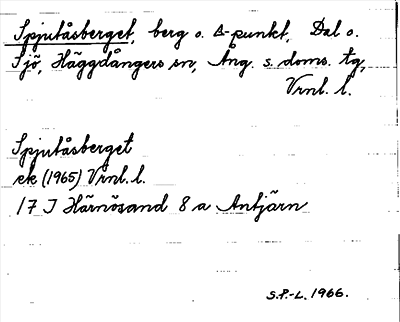 Spjutåsberget, berg o. Δ-punkt, Dal o.
Sjö, Häggdångers sn, Ång. s. doms. tg,
Vrnl. l.
Spjutåsberget
ek (1965) Vrnl. l.
17 I Härnösand 8 a Antjärn
S.P.-L. 1966.